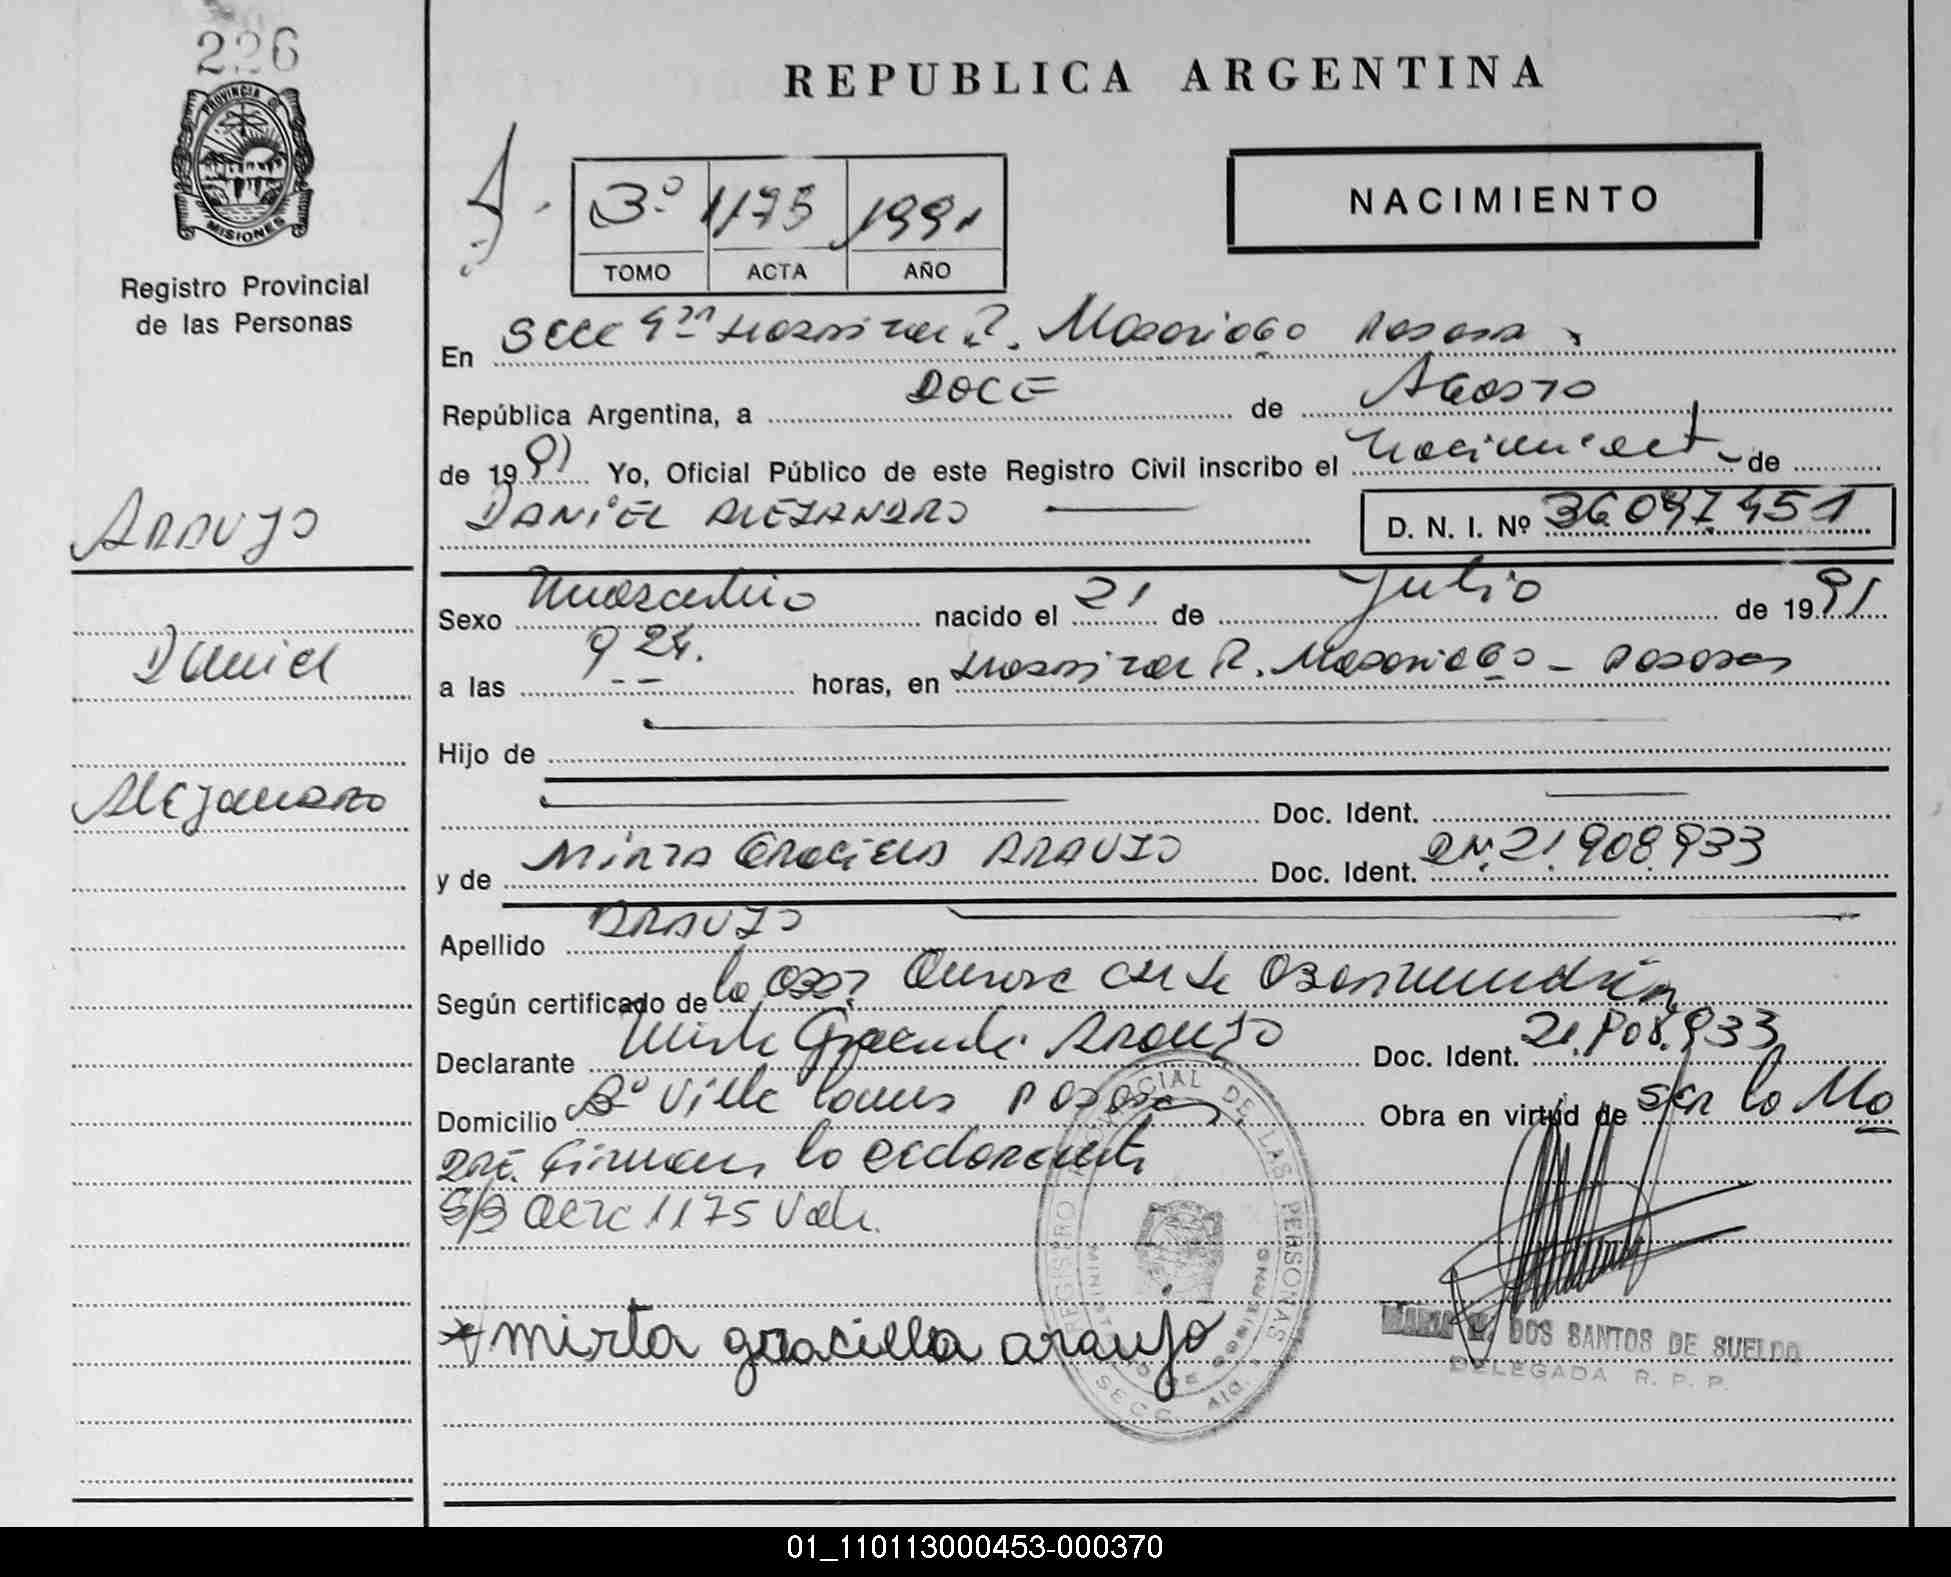 226
PROVINCIA DE
MISIONES
Registro Provincial
de las Personas
ARAUJO
Daniel
Alejandro
REPUBLICA ARGENTINA
NACIMIENTO
3º 1175 1991
TOMO ACTA AÑO
En Secc 4ta Hospital R. Madariaga Posadas
República Argentina, a DOCE de Agosto
de 1991 Yo, Oficial Público de este Registro Civil inscribo el nacimiento de
DANIEL ALEJANDRO D. N. I. Nº 36.097.451
Sexo Masculino nacido el 21 de Julio de 1991
a las 9 24. horas, en Hospital R. Madariaga - Posadas
Hijo de
Doc. Ident.
y de Mirta Graciela ARAUJO Doc. Ident. 21.908.933
Apellido ARAUJO
Según certificado de la Obst.
Declarante Mirta Graciela Araujo Doc. Ident. 21.908.933
Domicilio Bº Villa Lanus Posadas Obra en virtud de ser la Ma
dre. Firman la declarante
S/B Acta 1175 Vale.
mirta gracilla araujo
REGISTRO PROVINCIAL DE LAS PERSONAS
MINISTERIO DE GOBIERNO
SECC. 4ta.
DOS SANTOS DE SUELDO
DELEGADA R. P. P.
01_110113000453-000370